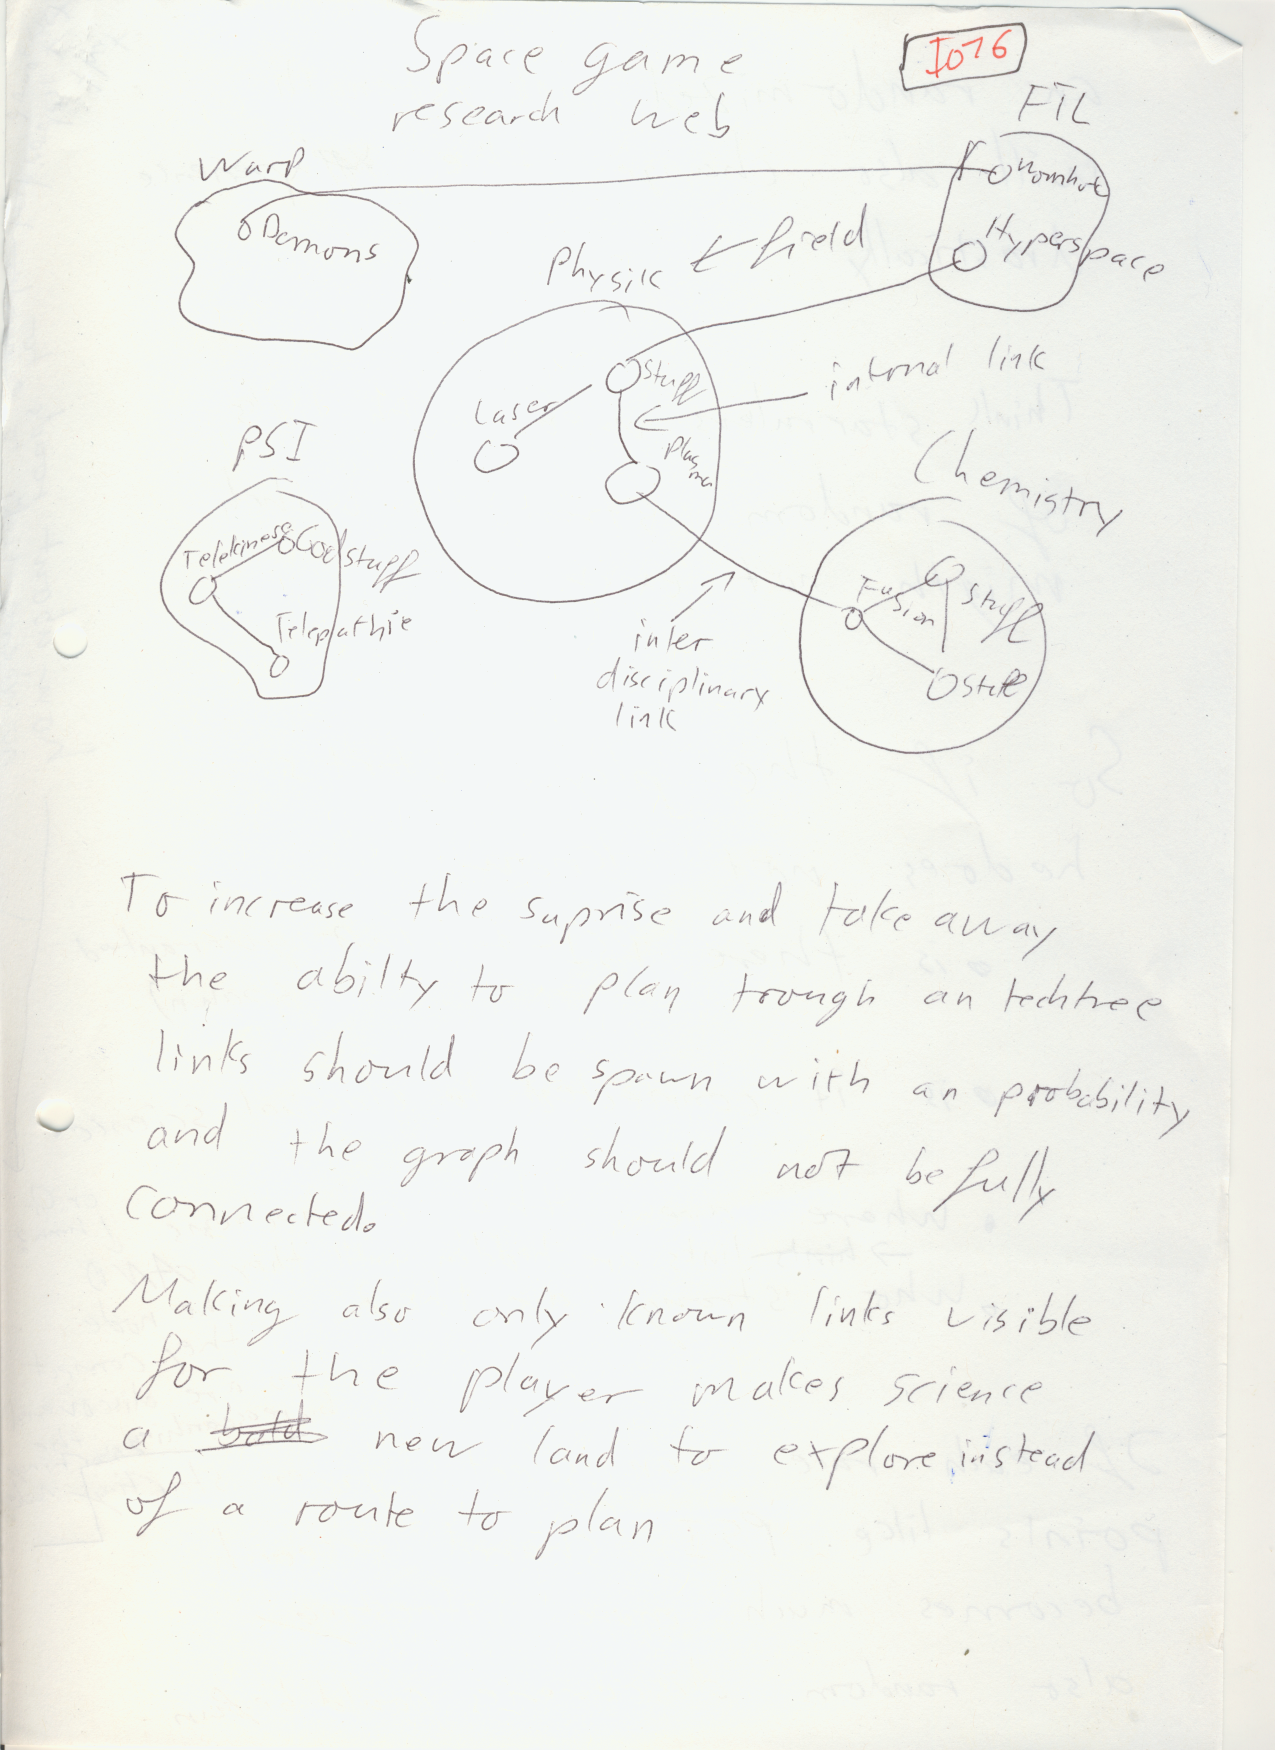 Space game
research web
I076
FTL
Warp
Wormhole
Demons
Hyperspace
Physik ← field
internal link
Stuff
Laser
Plasma
PSI
Chemistry
Telekinese
Cool stuff
Telepathie
Fusion
Stuff
Stuff
inter
disciplinary
link
To increase the suprise and take away
the abilty to plan trough an techtree
links should be spawn with an probability
and the graph should not be fully
connected.
Making also only known links visible
for the player makes science
a bold new land to explore, instead
of a route to plan